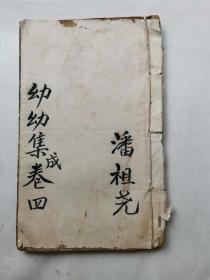 潘祖尧
幼幼集成卷四